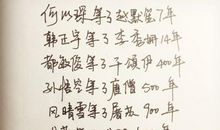 何以琛等了赵默笙7年
韩正宇等了李秀娜14年
都敏俊等了千颂伊400年
孙悟空等了唐僧500年
风晴雪等了屠苏900年